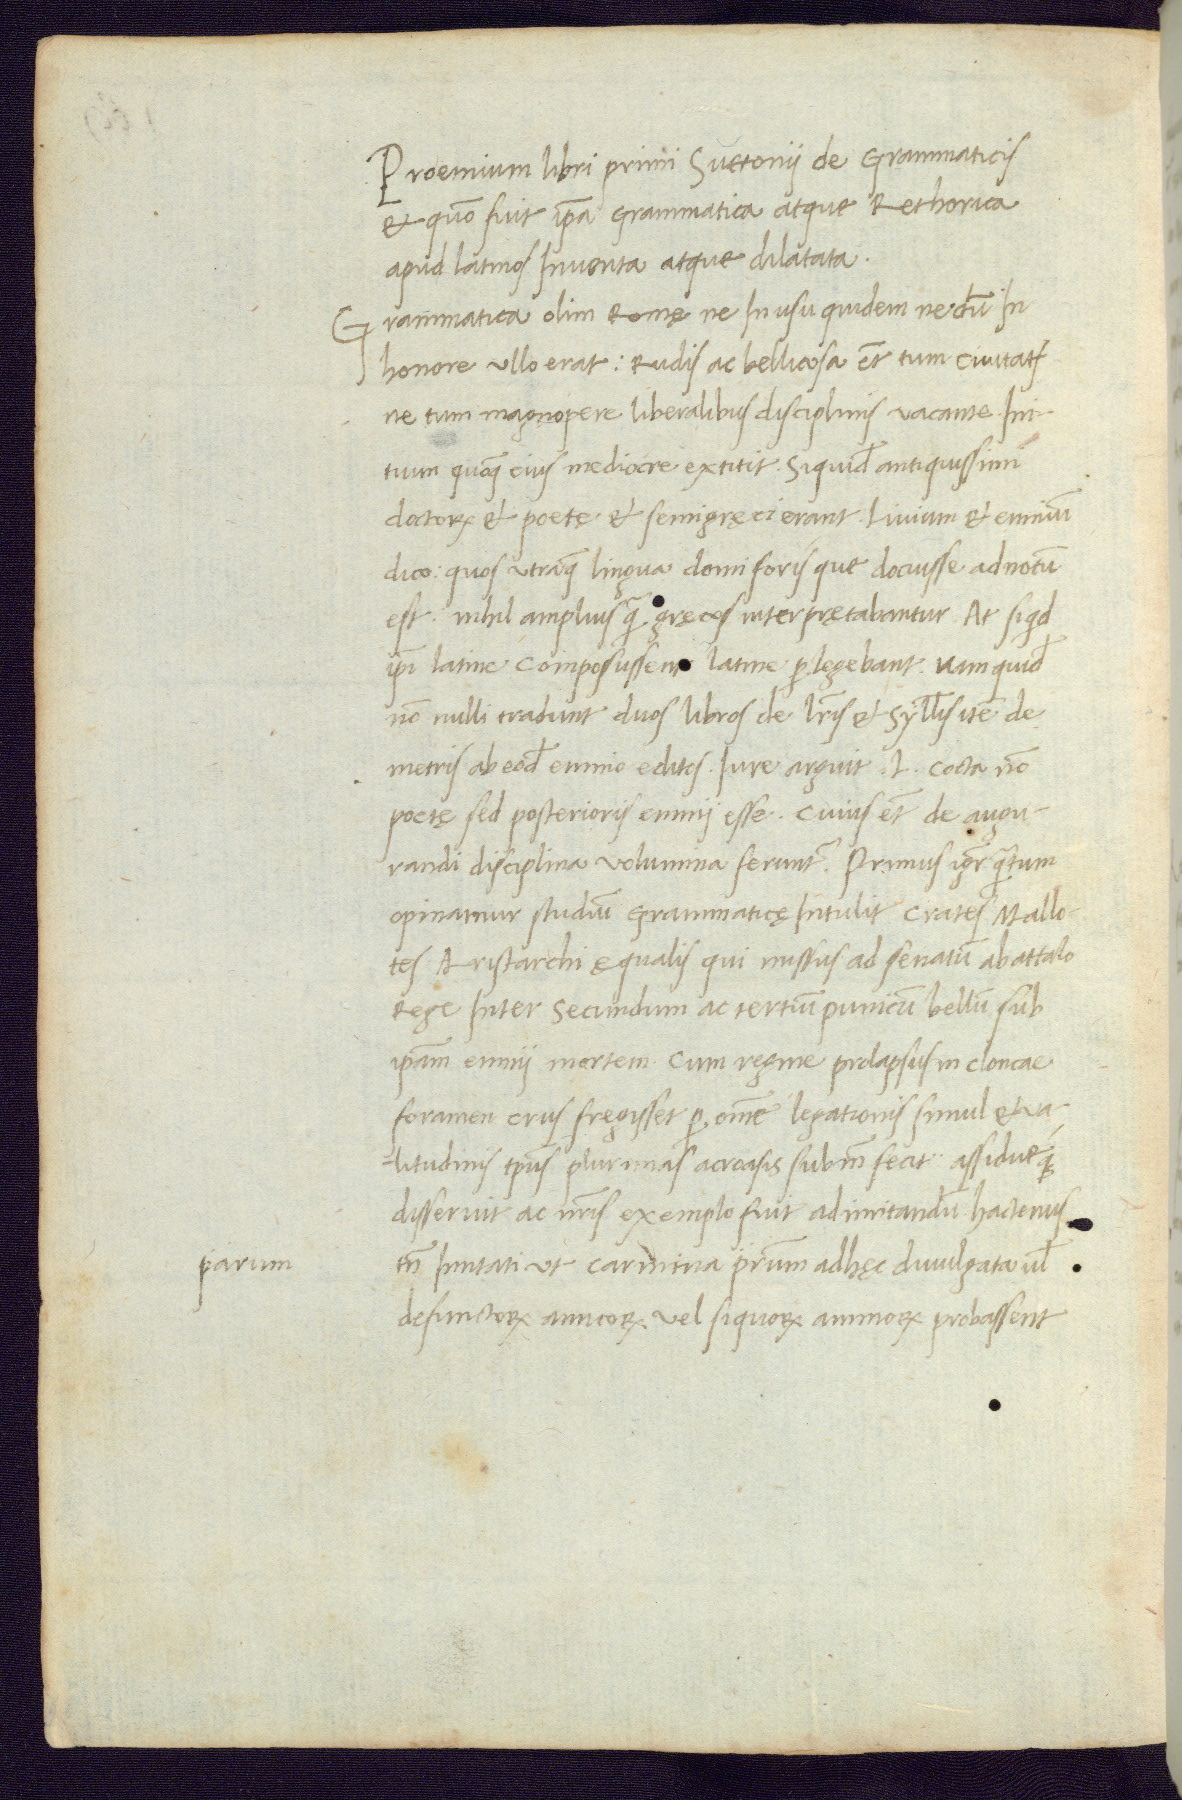 Proemium libri primi Suetonii de Grammaticis
et quō fuit ip̄a Grammatica atque Rethorica
apud latinos Inventa atque dilatata.
Grammatica olim Romę ne In usu quidem nedū In
honore ullo erat: Rudis ac bellicosa et̄ tum civitate
ne tum magnopere liberalibus disciplinis vacante. Ini-
tium quoq̨ eius mediocre extitit. Siquid̄ antiquissimi
doctorꝝ et poetę et semigręci erant. Livium et enniū
dico: quos utraq̨ lingua domi foris que docuisse adnotū
est. nihil amplius q̄ gręcos interpretabantur. At siqd̄
ip̄i latine Composuissent latine p̱legebant. Nam quid̄
nō nulli tradunt duos libros de lr̄is et Syll̄is itē de
metris ab eod̄ ennio editos. Iure arguit .L. cocta nō
poetę sed posterioris ennii esse. Cuius et̄ de augu-
randi disciplina volumina ferunt᷑. Primus igr̄ q̄tum
opinamur studiū Grammaticę Intulit Crates Mallo-
tes Aristarchi ęqualis qui missus ad senatū ab attalo
Rege Inter Secundum ac tertiū punicū bellū sub
ip̄am ennii mortem. Cum regine prolapsus in cloncae
foramen crus fregisset p̱ om̄e legationis simul et va-
litudinis tp̄us plurimas acroasis subm̄ fecit assidueq̨
disseruit ac nr̄is exemplo fuit ad imitandū hactenus
parum
tn̄ Imitati ut carmina pr̄um adhęc divulgata ul̄
defunctorꝝ amicorꝝ vel siquorꝝ animorꝝ probassent